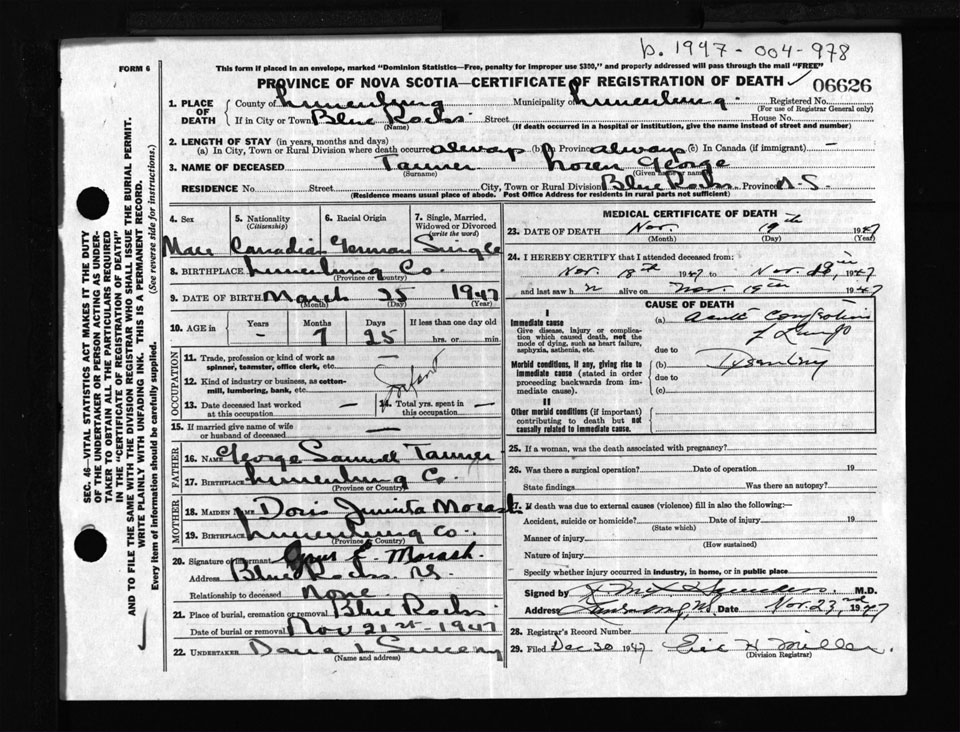 b. 1947 - 004 - 978
FORM 6
This form if placed in an envelope, marked "Dominion Statistics—Free, penalty for improper use $300," and properly addressed will pass through the mail "FREE"
PROVINCE OF NOVA SCOTIA—CERTIFICATE OF REGISTRATION OF DEATH ✓
06626
SEC. 46—VITAL STATISTICS ACT MAKES IT THE DUTY
OF THE UNDERTAKER OR PERSON ACTING AS UNDER-
TAKER TO OBTAIN ALL THE PARTICULARS REQUIRED
IN THE "CERTIFICATE OF REGISTRATION OF DEATH"
AND TO FILE THE SAME WITH THE DIVISION REGISTRAR WHO SHALL ISSUE THE BURIAL PERMIT.
WRITE PLAINLY WITH UNFADING INK. THIS IS A PERMANENT RECORD.
Every item of information should be carefully supplied. (See reverse side for instructions.)
1. PLACE OF DEATH
County of Lunenburg Municipality of Lunenburg Registered No.
(For use of Registrar General only)
If in City or Town Blue Rocks Street House No.
(Name) (If death occurred in a hospital or institution, give the name instead of street and number)
2. LENGTH OF STAY (in years, months and days)
(a) In City, Town or Rural Division where death occurred always (b) In Province always (c) In Canada (if immigrant) —
3. NAME OF DECEASED Tanner George
(Surname) (Given name or names)
RESIDENCE No. Street City, Town or Rural Division Blue Rocks Province N.S.
(Residence means usual place of abode. Post Office Address for residents in rural parts not sufficient)
4. Sex 5. Nationality 6. Racial Origin 7. Single, Married,
(Citizenship) Widowed or Divorced
(write the word)
Male Canadian German Single
8. BIRTHPLACE Lunenburg Co.
(Province or Country)
9. DATE OF BIRTH March 25 1947
(Month) (Day) (Year)
10. AGE in Years Months Days If less than one day old
7 25 hrs. or min.
OCCUPATION
11. Trade, profession or kind of work as
spinner, teamster, office clerk, etc. —
12. Kind of industry or business, as cotton-
mill, lumbering, bank, etc.
13. Date deceased last worked
at this occupation —
14. Total yrs. spent in
this occupation —
15. If married give name of wife
or husband of deceased —
FATHER
16. NAME George Samuel Tanner
17. Birthplace Lunenburg Co.
(Province or Country)
MOTHER
18. MAIDEN NAME Doris Morash
19. Birthplace Lunenburg Co.
(Province or Country)
20. Signature of informant Morash
Address Blue Rocks NS.
Relationship to deceased None
21. Place of burial, cremation or removal Blue Rocks
Date of burial or removal Nov 21st - 1947
22. UNDERTAKER Dana L Sweeny
(Name and address)
MEDICAL CERTIFICATE OF DEATH
23. DATE OF DEATH Nov. 19th 1947
(Month) (Day) (Year)
24. I HEREBY CERTIFY that I attended deceased from:
Nov. 18th 1947 to Nov. 1947
and last saw h alive on Nov. 19th 1947
CAUSE OF DEATH
I
Immediate cause
Give disease, injury or complica-
tion which caused death, not the
mode of dying, such as heart failure,
asphyxia, asthenia, etc.
(a) Acute Congestion
of Lungs
due to
Morbid conditions, if any, giving rise to
immediate cause (stated in order
proceeding backwards from im-
mediate cause).
(b) Dysentery
due to
(c)
II
Other morbid conditions (if important)
contributing to death but not
causally related to immediate cause.
25. If a woman, was the death associated with pregnancy?
26. Was there a surgical operation? Date of operation 19
State findings Was there an autopsy?
27. If death was due to external causes (violence) fill in also the following:—
Accident, suicide or homicide? Date of injury 19
(State which)
Manner of injury
(How sustained)
Nature of injury
Specify whether injury occurred in industry, in home, or in public place
Signed by M.D.
Address Lunenburg, NS Date Nov. 23rd 1947
28. Registrar's Record Number
29. Filed Dec 30 1947 Eric H Miller
(Division Registrar)